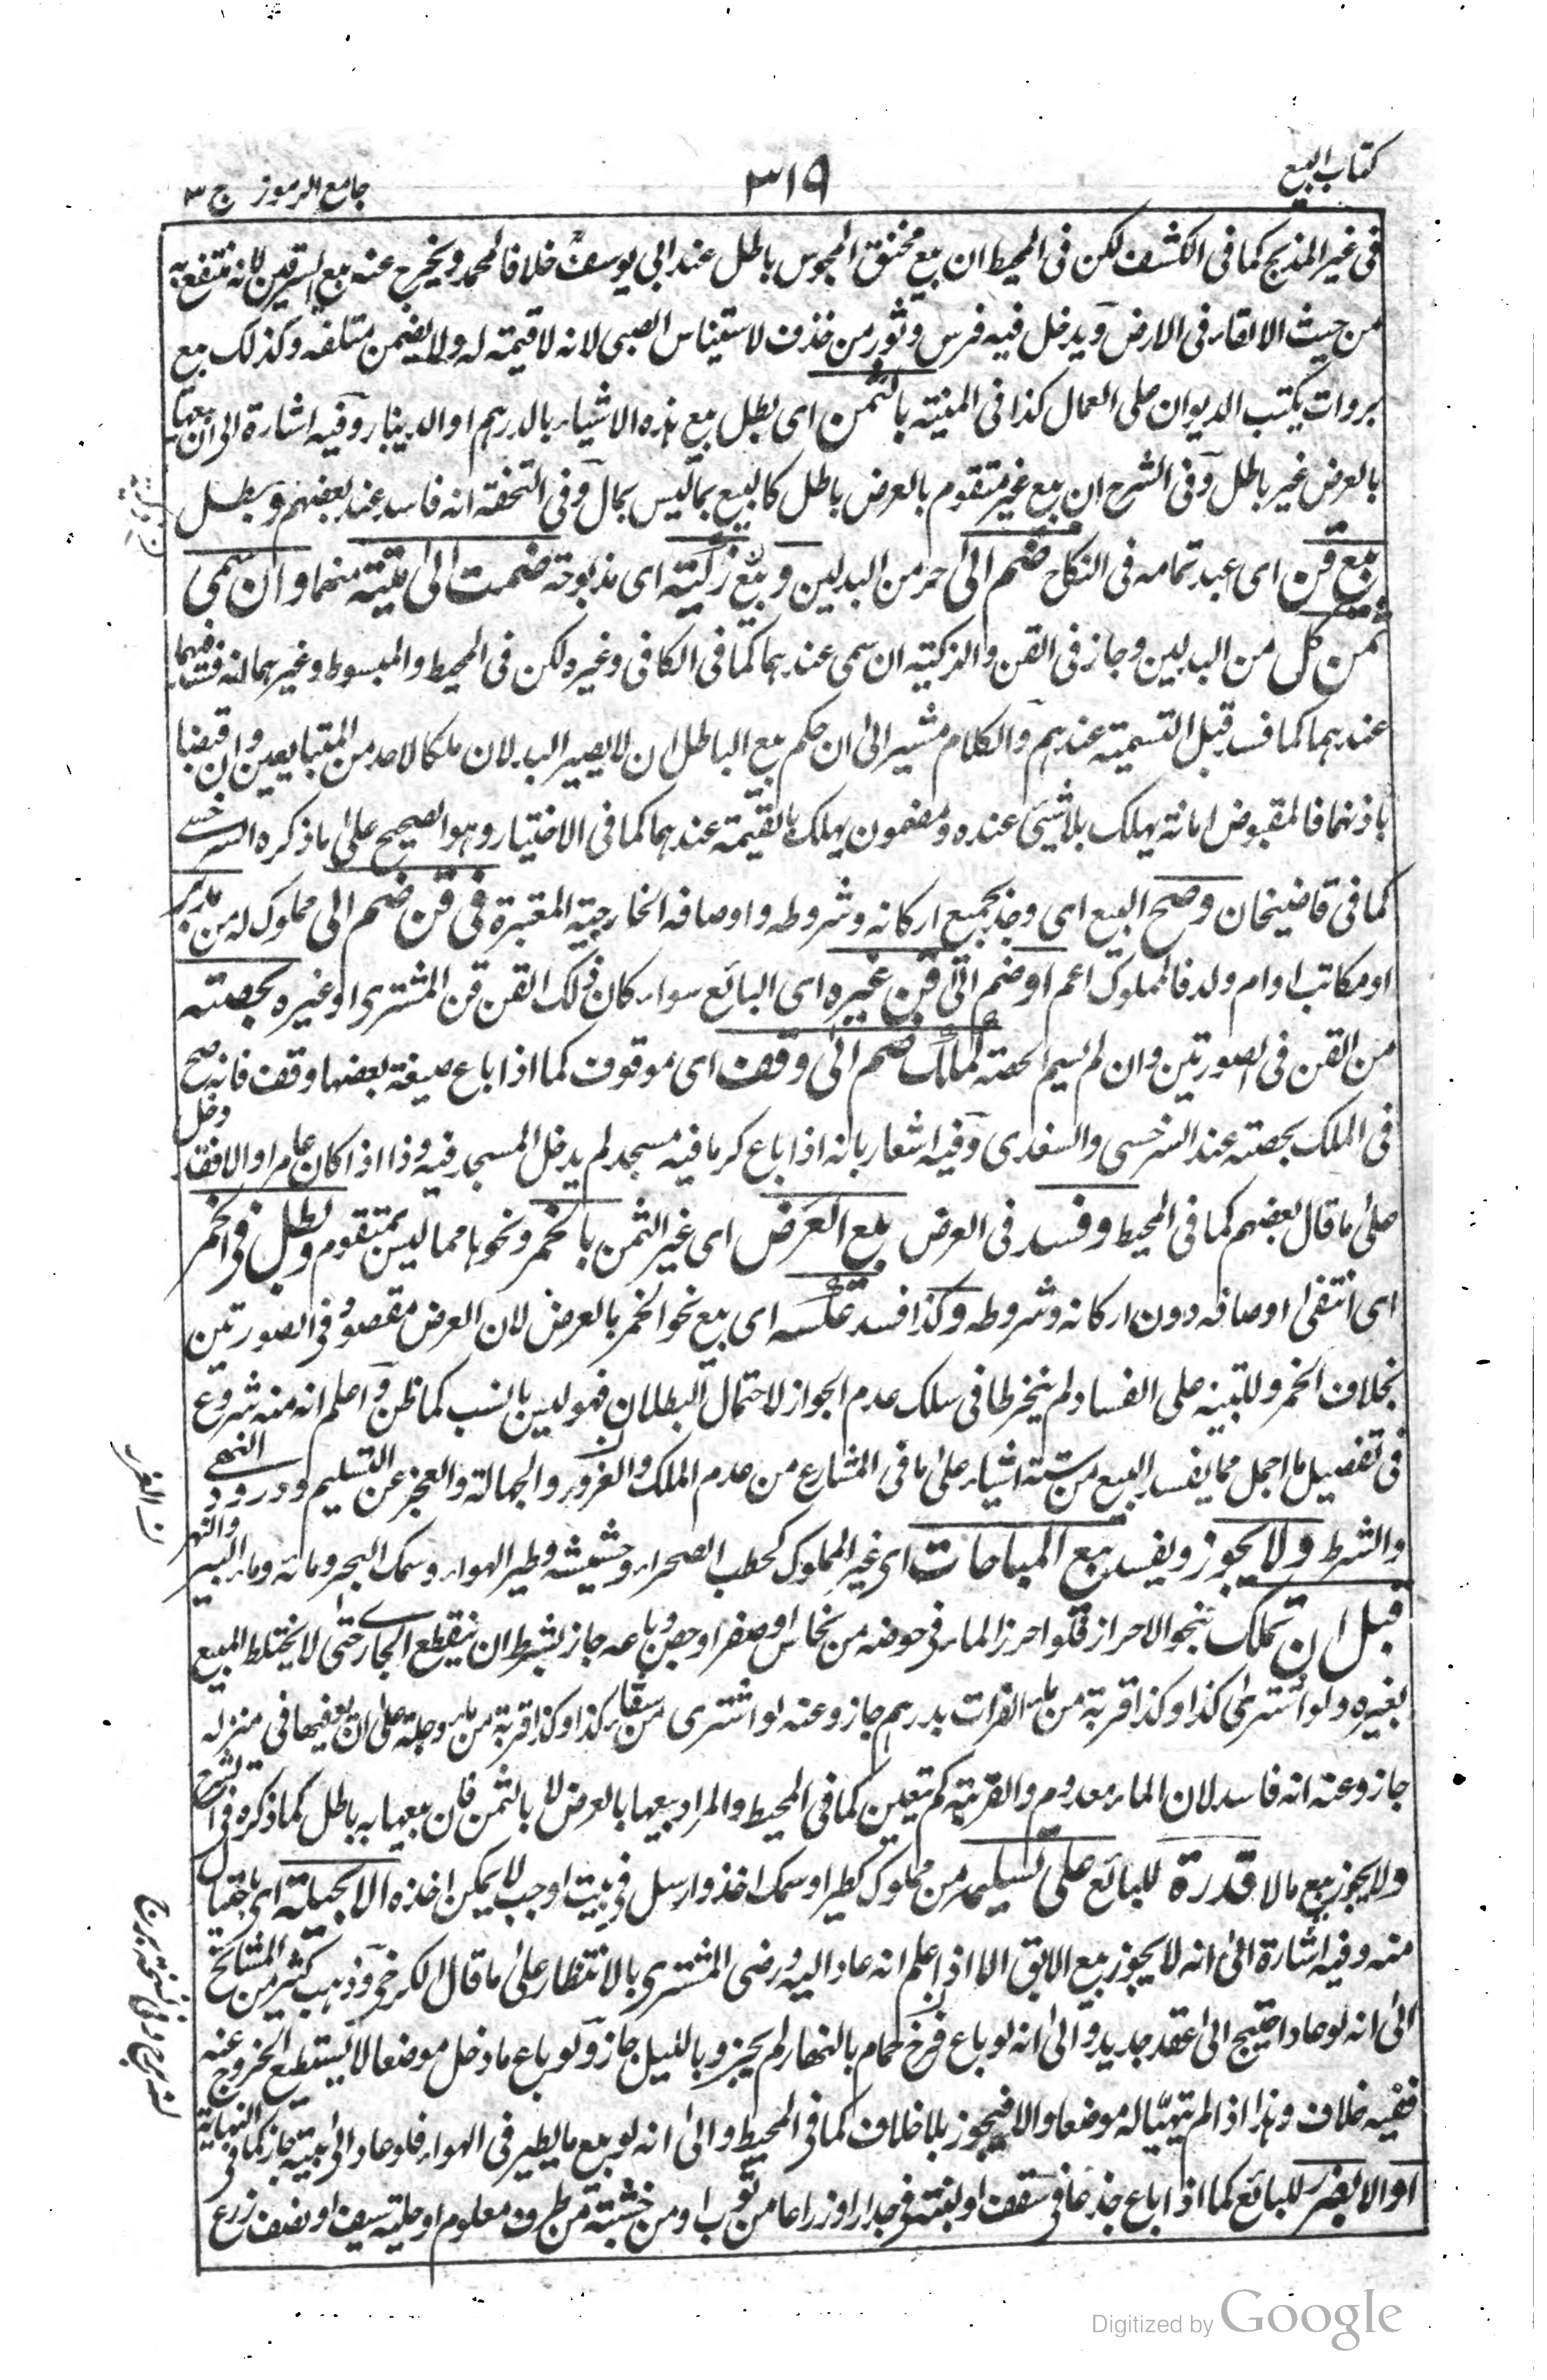 كتاب البيع
٣١٩
جامع الرموز ج ٣
فى غير المذبح كما فى الكشف لكن فى المحيط ان بيع مخنق المجوس باطل عند ابى يوسف خلافا لمحمد ويخرج عنه بيع السرقين لانه منتفع به
من حيث الالقاء فى الارض ويدخل فيه فرس وثور من خذف لاستيناس الصبى لانه لا قيمة له ولا يضمن متلفه وكذلك بيع
بروات يكتب الديوان على العمال كذا فى المنية بالثمن اى بطل بيع هذه الاشياء بالدرهم او الدينار وفيه اشارة الى ان بيعها
بالعرض غير باطل وفى الشرح ان بيع غير متقوم بالعرض باطل كالبيع بما ليس بمال وفى التحفة انه فاسد عند بعضهم وبطل
بيع قن اى عبد تمامه فى النكاح ضم الى حر من البدلين وبيع زكية اى مذبوحة ضمت الى ميتة منهما وان سمى
ثمن كل من البدلين وجاز فى القن والذكية ان سمى عندهما كما فى الكافى وغيره لكن فى المحيط والمبسوط وغيرهما انه فسد فيهما
عندهما كما فسد قبل التسمية عندهم والكلام مشير الى ان حكم بيع الباطل ان لا يصير البدلان ملكا لاحد من المتبايعين وان قبضا
باذنهما فالمقبوض امانة يهلك بلا شئ عنده ومضمون يهلك بالقيمة عندهما كما فى الاختيار وهو الصحيح على ما ذكره السرخسى
كما فى قاضيخان وصح البيع اى وجد بجميع اركانه وشروطه واوصافه الخارجية المعتبرة فى قن ضم الى مملوك له من مدبر
او مكاتب او ام ولد فالمملوك اعم او ضم الى قن غيره اى البائع سواء كان ذلك القن قن المشترى او غيره بحصته
من القن فى الصورتين وان لم يسم الحصة كملك ضم الى وقف اى موقوف كما اذا باع ضيعة بعضها وقف فانه صح
فى الملك بحصته عند السرخسى والسغدى وفيه اشعار بانه اذا باع كرما فيه مسجد لم يدخل المسجد فيه وذا اذا كان عامرا والا فقد دخل
على ما قال بعضهم كما فى المحيط وفسد فى العرض بيع العرض اى غير الثمن بالخمر ونحوها مما ليس بمتقوم وبطل فى الخمر
اى انتفى اوصافه دون اركانه وشروطه وكذا فسد عكسه اى بيع نحو الخمر بالعرض لان العرض مقصود فى الصورتين
بخلاف الخمر وللتنبيه على الفساد لم ينخرطا فى سلك عدم الجواز لاحتمال البطلان فهو ليس بانسب كما ظن واعلم انه منه شروع
فى تفصيل ما اجمل مما يفسد البيع من ستة اشياء على ما فى المشارع من عدم الملك والغرور والجهالة والعجز عن التسليم وورود النهى
والشرط ولا يجوز ويفسد بيع المباحات اى غير المملوك كحطب الصحراء وحشيشه وطير الهواء وسمك البحر ومائه وماء البير والنهر
قبل ان تملك بنحو الاحراز فلو احرز الماء فى حوضه من نحاس او صفر او جص وباعه جاز بشرط ان ينقطع الجارى حتى لا يختلط المبيع
بغيره ولو اشترى كذا وكذا قربة من ماء الفرات بدرهم جاز وعنه لو اشترى من سقاء كذا وكذا قربة من ماء دجلة على ان يوفيها فى منزله
جاز وعنه انه فاسد لان الماء معدوم والقربة لم يتعين كما فى المحيط والمراد بيعها بالعرض لا بالثمن فان بيعها به باطل كما ذكره فى الشرح
ولا يجوز بيع مالا قدرة للبائع على تسليمه من مملوك كطير او سمك اخذ وارسل فى بيت او جب لا يمكن اخذه الا بحيلة اى باحتيال
منه وفيه اشارة الى انه لا يجوز بيع الآبق الا اذا علم انه عاد اليه ورضى المشترى بالانتظار على ما قال الكرخى وذهب كثير من المشائخ
الى انه لو عاد احتيج الى عقد جديد والى انه لو باع فرخ حمام بالنهار لم يجز وبالليل جاز ولو باع ما دخل موضعا لا يستطيع الخروج عنه
ففيه خلاف وهذا اذا لم يتهيأ له موضعا والا فيجوز بلا خلاف كما فى المحيط والى انه لو بيع ما يطير فى الهواء فلو عاد الى بيته جاز كما فى النهاية
او الا بضرر للبائع كما اذا باع جذعا فى سقف او لبنة فى جدار او ذراعا من ثوب او من خشبة من طرف معلوم او حلية سيف او نصف زرع